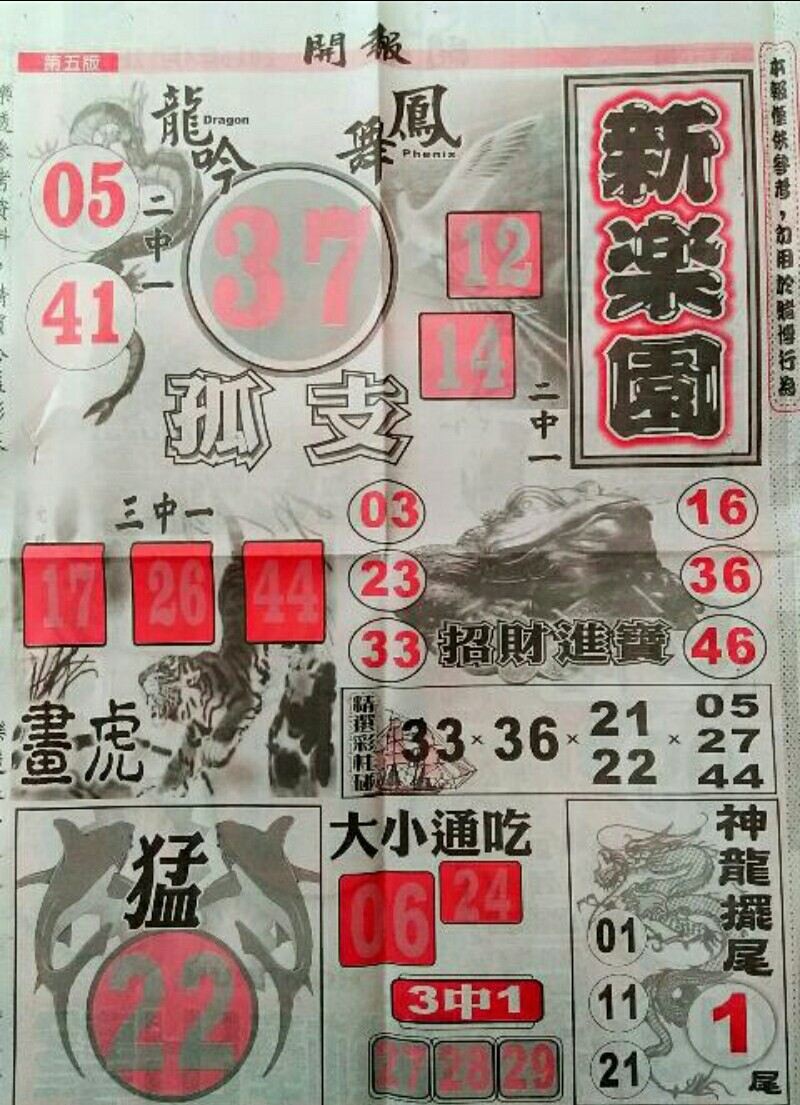 開報
第五版
龍吟
Dragon
鳳舞
Phenix
新楽園
本報僅供參考，勿用於賭博行為
05
41
二中一
37
孤支
12
14
二中一
三中一
17 26 44
畫虎
03
23
33
16
36
46
招財進寶
精選彩柱碰
33 × 36 × 21 22 × 05 27 44
猛
22
大小通吃
06
24
3中1
27 28 29
神龍擺尾
01
11
21
1
尾